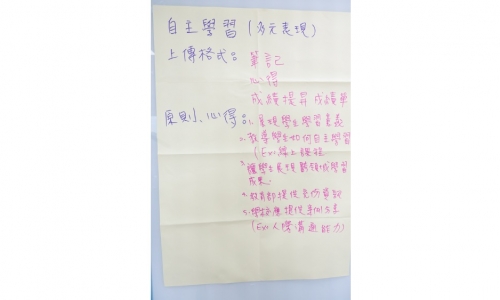 自主學習(多元表現)
上傳格式：筆記
心得
成績提昇成績單
原則、心得：1. 展現學生學習意義
2. 教導學生如何自主學習
(Ex：線上課程
3. 讓學生展現跨領域學習
成果.
4. 教育部提供範例資訊
5. 學校應提供事例分享
(Ex：人際溝通能力)